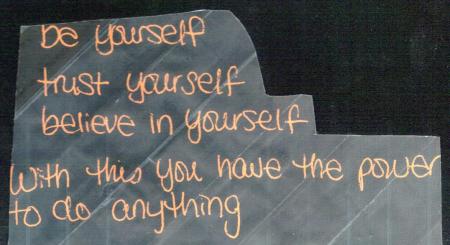 be yourself
trust yourself
believe in yourself
With this you have the power
to do anything